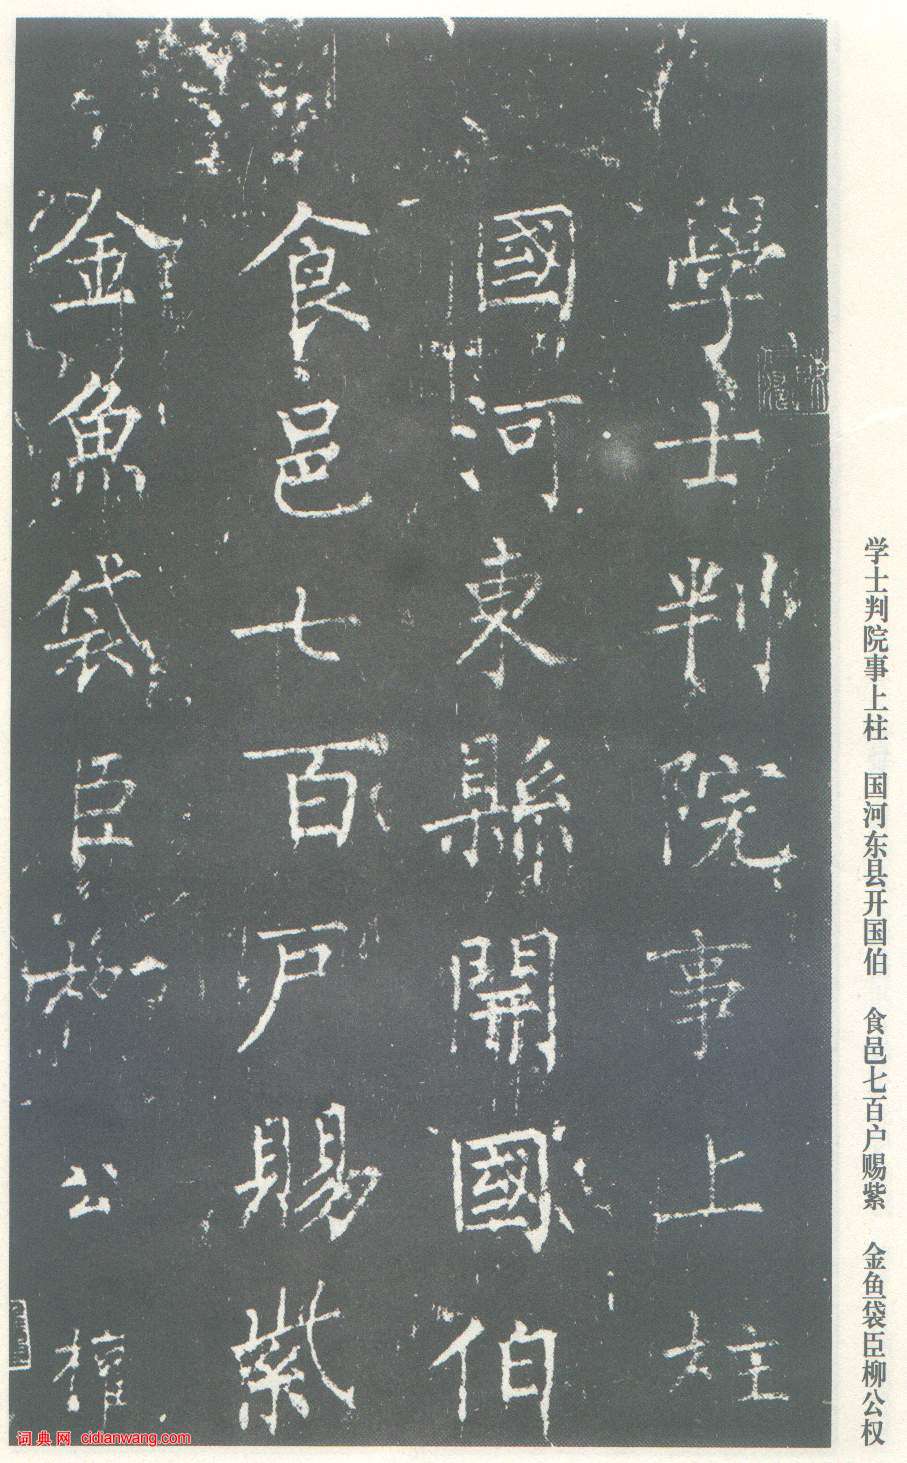 學士判院事上柱
國河東縣開國伯
食邑七百戶賜紫
金魚袋臣柳公權
学士判院事上柱 国河东县开国伯 食邑七百户赐紫 金鱼袋臣柳公权
词典网 cidianwang.com